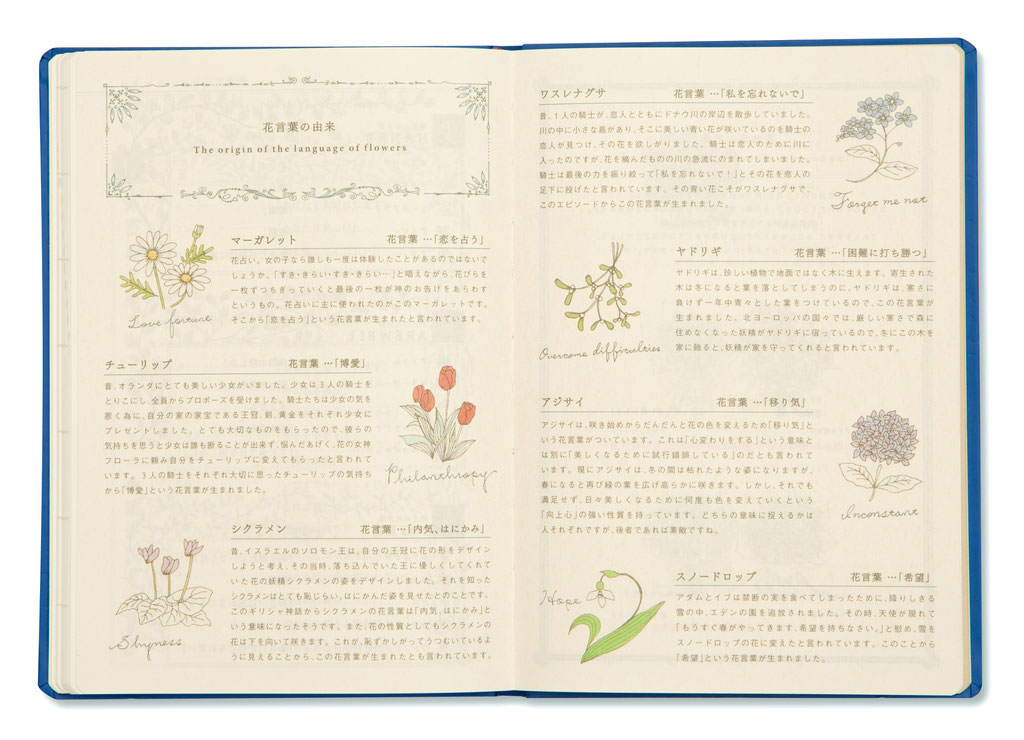 花言葉の由来
The origin of the language of flowers
マーガレット 花言葉 …「恋を占う」
花占い、女の子なら誰しも一度は体験したことがあるのではないで
しょうか。「すき・きらい・すき・きらい…」と唱えながら、花びらを
一枚ずつちぎっていくと最後の一枚が神のお告げをあらわす
というもの。花占いに主に使われたのがこのマーガレットです。
そこから「恋を占う」という花言葉が生まれたと言われています。
Love fortune
チューリップ 花言葉 …「博愛」
昔、オランダにとても美しい少女がいました。少女は3人の騎士を
とりこにし、全員からプロポーズを受けました。騎士たちは少女の気を
惹く為に、自分の家の家宝である王冠、剣、黄金をそれぞれ少女に
プレゼントしました。とても大切なものをもらったので、彼らの
気持ちを思うと少女は誰も断ることが出来ず、悩んだあげく、花の女神
フローラに頼み自分をチューリップに変えてもらったと言われて
います。3人の騎士をそれぞれ大切に思ったチューリップの気持ち
から「博愛」という花言葉が生まれました。
Philanthropy
シクラメン 花言葉 …「内気、はにかみ」
昔、イスラエルのソロモン王は、自分の王冠に花の形をデザイン
しようと考え、その当時、落ち込んでいた王に優しくしてくれて
いた花の妖精シクラメンの姿をデザインしました。それを知った
シクラメンはとても恥じらい、はにかんだ姿を見せたとのことです。
このギリシャ神話からシクラメンの花言葉は「内気、はにかみ」と
いう意味になったそうです。また、花の性質としてもシクラメンの
花は下を向いて咲きます。これが、恥ずかしがってうつむいているよ
うに見えることから、この花言葉が生まれたとも言われています。
Shyness
ワスレナグサ 花言葉 …「私を忘れないで」
昔、1人の騎士が、恋人とともにドナウ川の岸辺を散歩していました。
川の中に小さな島があり、そこに美しい青い花が咲いているのを騎士の
恋人が見つけ、その花を欲しがりました。騎士は恋人のために川に
入ったのですが、花を摘んだものの川の急流にのまれてしまいました。
騎士は最後の力を振り絞って「私を忘れないで！」とその花を恋人の
足下に投げたと言われています。その青い花こそがワスレナグサで、
このエピソードからこの花言葉が生まれました。
Forget me not
ヤドリギ 花言葉 …「困難に打ち勝つ」
ヤドリギは、珍しい植物で地面ではなく木に生えます。寄生された
木は冬になると葉を落としてしまうのに、ヤドリギは、寒さに
負けず一年中青々とした葉をつけているので、この花言葉が
生まれました。北ヨーロッパの国々では、厳しい寒さで森に
住めなくなった妖精がヤドリギに宿っているので、冬にこの木を
家に飾ると、妖精が家を守ってくれると言われています。
Overcome difficulties
アジサイ 花言葉 …「移り気」
アジサイは、咲き始めからだんだんと花の色を変えるため「移り気」と
いう花言葉がついています。これは「心変わりをする」という意味と
は別に「美しくなるために試行錯誤している」のだとも言われて
います。現にアジサイは、冬の間は枯れたような姿になりますが、
春になると再び緑の葉を広げ高らかに咲きます。しかし、それでも
満足せず、日々美しくなるために何度も色を変えていくという
「向上心」の強い性質を持っています。どちらの意味に捉えるかは
人それぞれですが、後者であれば素敵ですね。
Inconstant
スノードロップ 花言葉 …「希望」
アダムとイブは禁断の実を食べてしまったために、降りしきる
雪の中、エデンの園を追放されました。その時、天使が現れて
「もうすぐ春がやってきます、希望を持ちなさい。」と慰め、雪を
スノードロップの花に変えたと言われています。このことから
「希望」という花言葉が生まれました。
Hope